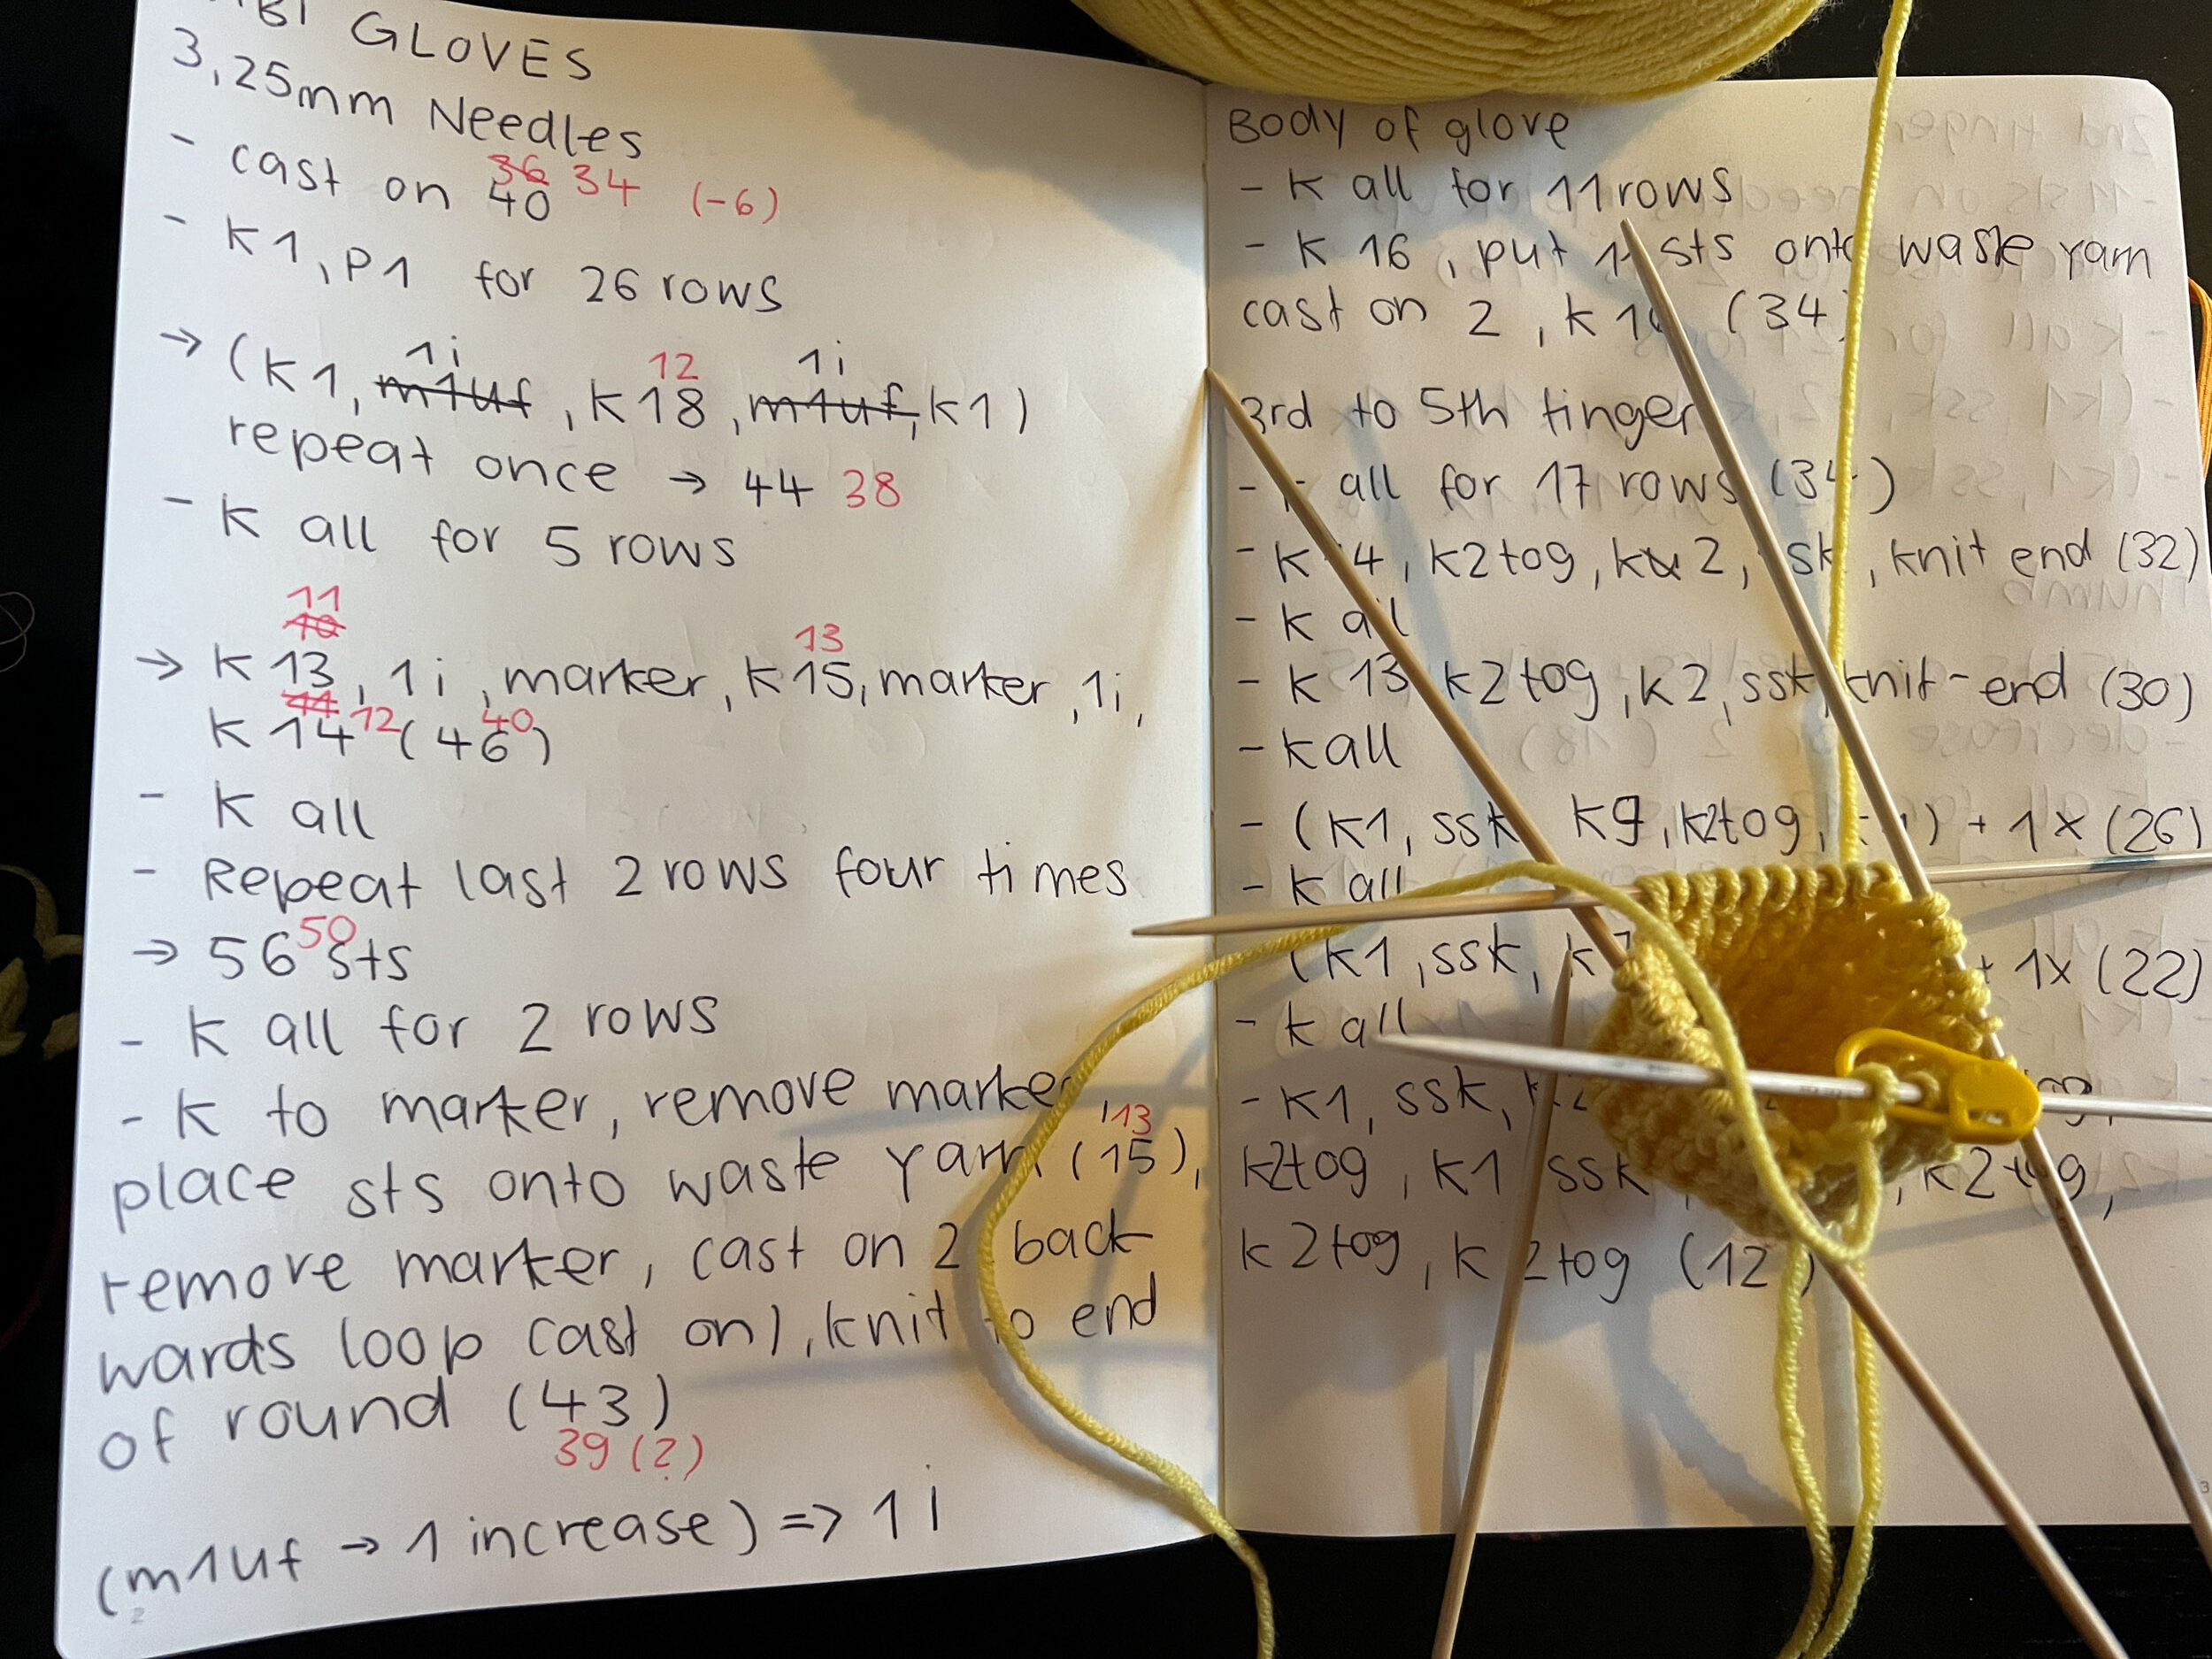 GLOVES
3,25mm Needles
- cast on 40 36 34 (-6)
- K1, P1 for 26 rows
→ (K1, m1uf 1i, K18 12, m1uf, 1i K1)
repeat once → 44 38
- K all for 5 rows
→ K 13 10 11, 1i, marker, K15 13, marker, 1i,
K 14 11 12 (46 40)
- K all
- Repeat last 2 rows four times
→ 56 50 sts
- K all for 2 rows
- K to marker, remove marker,
place sts onto waste yarn (15) 13,
remove marker, cast on 2 back
wards loop cast on), knit to end
of round (43)
39 (?)
(m1uf → 1 increase) => 1i
2
Body of glove
- K all for 11 rows
- K 16, put sts onto waste yarn
cast on 2, K (34
3rd to 5th finger
- all for 17 rows (34)
- K 4, K2tog, K 2, knit end (32)
- K all
- K 13 K2tog, K2, ssk knit-end (30)
- K all
- (K1, ssk K9, K2tog, ) + 1x (26)
- K all
(K1, ssk, + 1x (22)
- K all
- K1, ssk,
K2tog, K1 ssk , K2tog,
K2tog, K2tog (12)
3